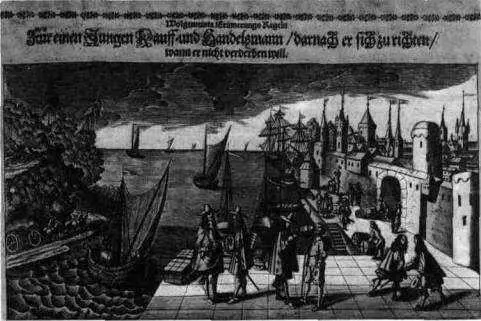 Wolgemeinte Erinnerungs Regeln
Für einen Jungen Kauff- und Handelsmann / darnach er sich zu richten /
wann er nicht verderben will.